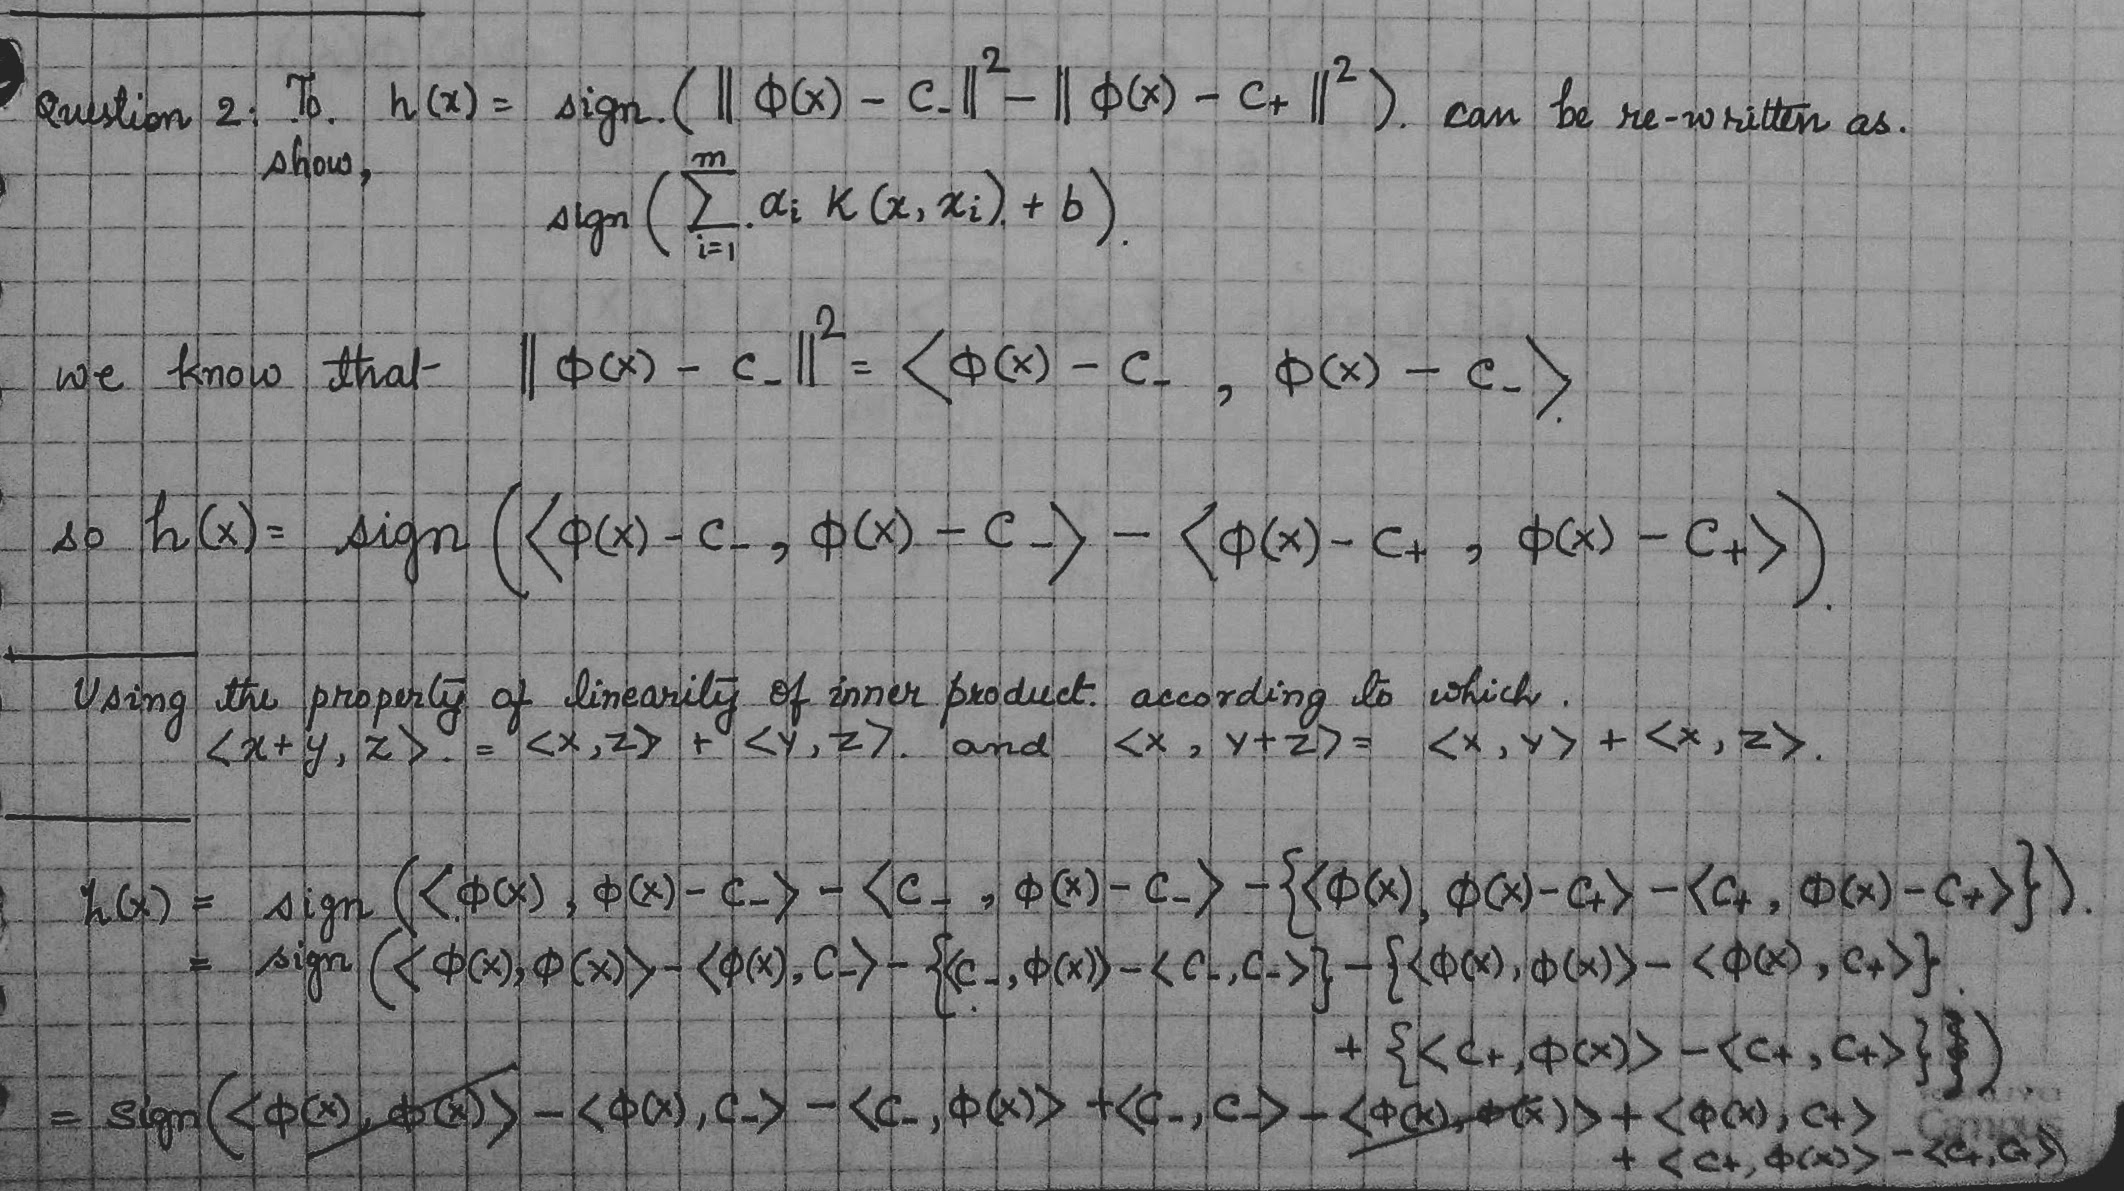 Question 2: To. h(x) = sign.(‖ϕ(x) − C₋‖² − ‖ϕ(x) − C₊‖²). can be re-written as.
show,
sign(∑_{i=1}^{m}. αᵢ K(x, xᵢ). + b).
we know that ‖ϕ(x) − C₋‖² = <ϕ(x) − C₋ , ϕ(x) − C₋>.
so h(x) = sign(<ϕ(x) − C₋, ϕ(x) − C₋> − <ϕ(x) − C₊ , ϕ(x) − C₊>).
Using the property of linearity of inner product. according to which.
<x+y, z>. = <x, z> + <y, z>. and <x, y+z> = <x, y> + <x, z>.
h(x) = sign(<ϕ(x), ϕ(x) − C₋> − <C₋ , ϕ(x) − C₋> − {<ϕ(x), ϕ(x) − C₊> − <C₊, ϕ(x) − C₊>}).
= sign(<ϕ(x), ϕ(x)> − <ϕ(x), C₋> − {<C₋, ϕ(x)> − <C₋, C₋>} − {<ϕ(x), ϕ(x)> − <ϕ(x), C₊>}.
+ {<C₊, ϕ(x)> − <C₊, C₊>}).
= sign(<ϕ(x), ϕ(x)> − <ϕ(x), C₋> − <C₋, ϕ(x)> + <C₋, C₋> − <ϕ(x), ϕ(x)> + <ϕ(x), C₊>
+ <C₊, ϕ(x)> − <C₊, C₊>)
Campus